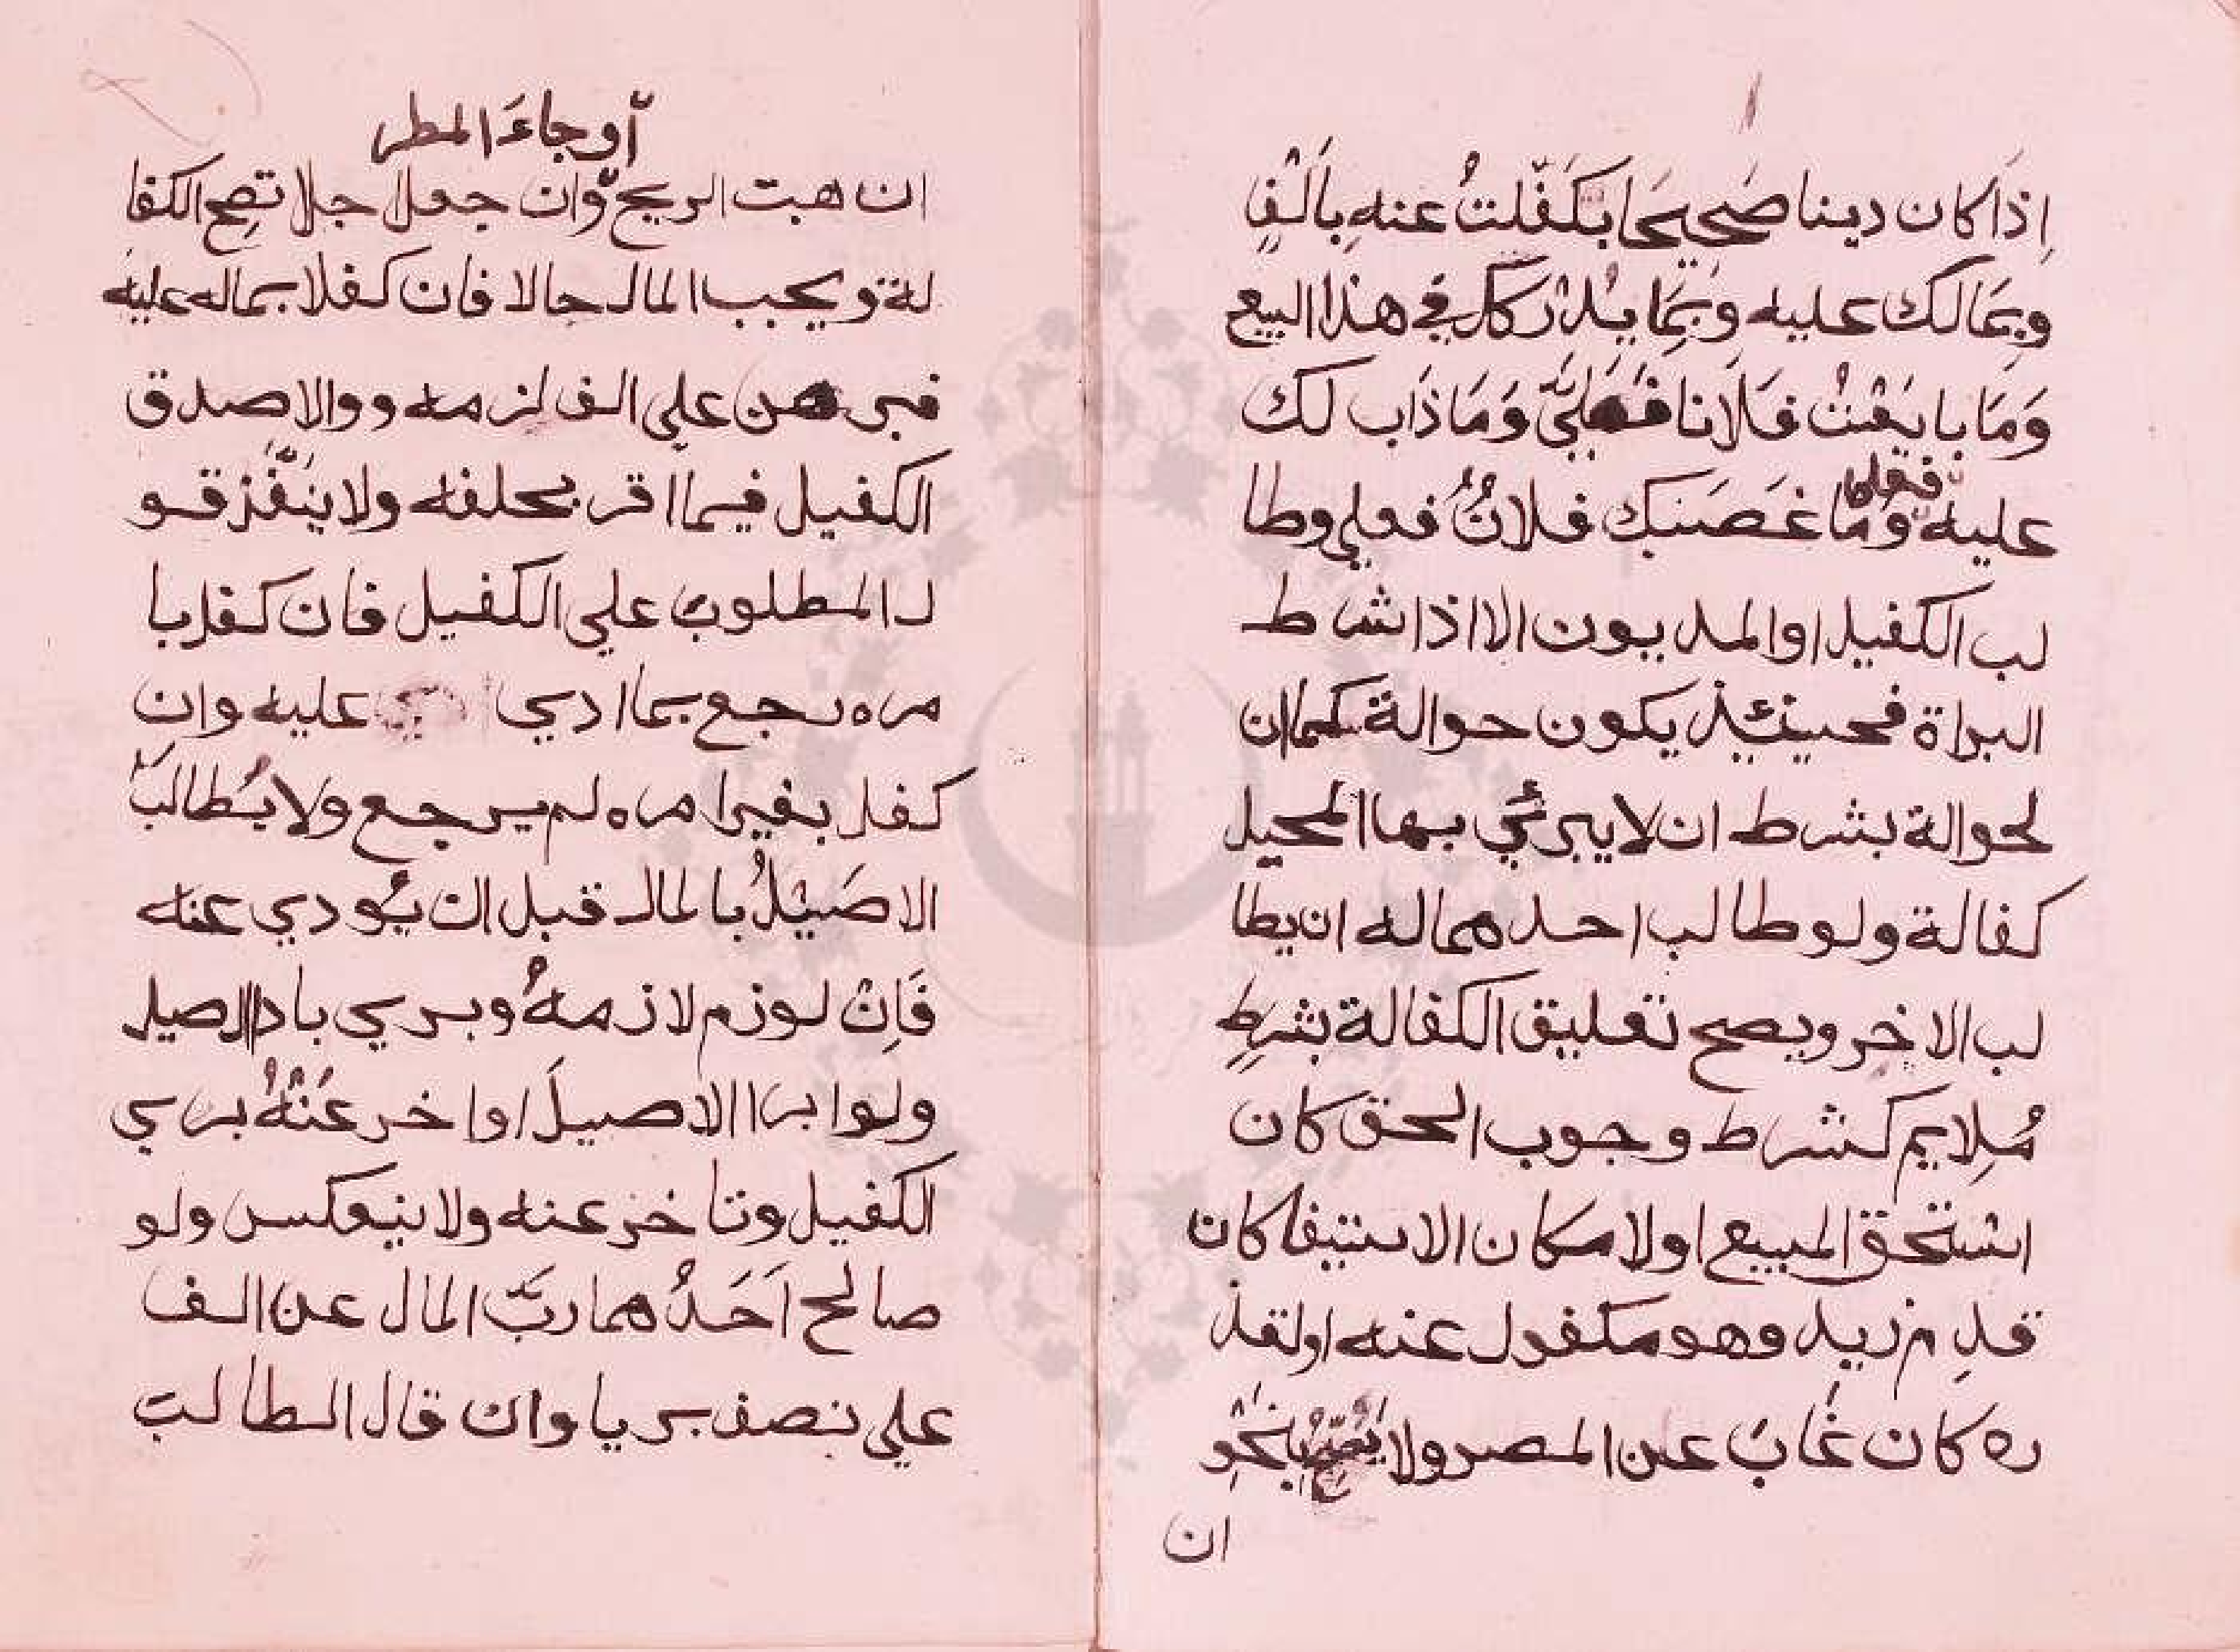 إذا كان دينا صحيحا بتكفّلتُ عنه بألفٍ
وبمالك عليه وبما يدْرككَ في هذا البيع
وَمَا بايَعْتُ فلَانا فعليَّ وَمَا ذَاب لك
عليه فعلي وما غَصَبَك فلانٌ فعلي وطا
لب الكفيل او المديون الا اذا شرط
البراة فحينئذ يكون حوالة كما ان
لحوالة بشرط ان لا يبرئي بها المحيل
كفالة ولو طالب احدهما له ان يطا
لب الاخر ويصح تعليق الكفالة بشرط
مُلِايم كشرط وجوب الحق كان
استحق المبيع او لامكان الاستيفا كان
قدِم زيد وهو مكفول عنه او لتعذ
ره كان غَابَ عن المصر ولا يصِحُّ بنحْوِ
ان
أو جاءَ المطر
ان هبت الريح وان جعل اجلا تصِح الكفا
لة ويجب المال حالا فان كفل بماله عليه
فبرهن علي الف لزمه ووالا صدق
الكفيل فيما اقر بحلفه ولا ينَفّذ قو
ل المطلوب علي الكفيل فان كفل با
مره رجع بما ادي عليه وان
كفل بغير امره لم يرجع ولا يُطالبَ
الاصَيْلُ بالمال قبل ان يُودي عنه
فَاِنْ لوزم لازمهُ وبري باد الاصيل
ولو ابرا الاصيلَ او اخر عَنْهُ بري
الكفيل وتاخر عنه ولا ينعكس ولو
صالح اَحَدُهما ربَّ المال عن الف
علي نصف بريا وان قال الطالبَ